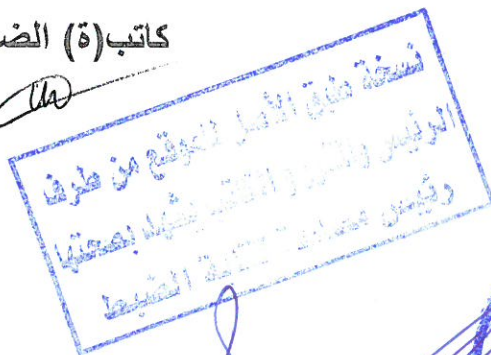 كاتب(ة) الض
نسخة طبق الأصل للموقع من طرف
الرئيس والمقرر و الكاتب يشهد بصحتها
رئيس مصلحة كتابة الضبط